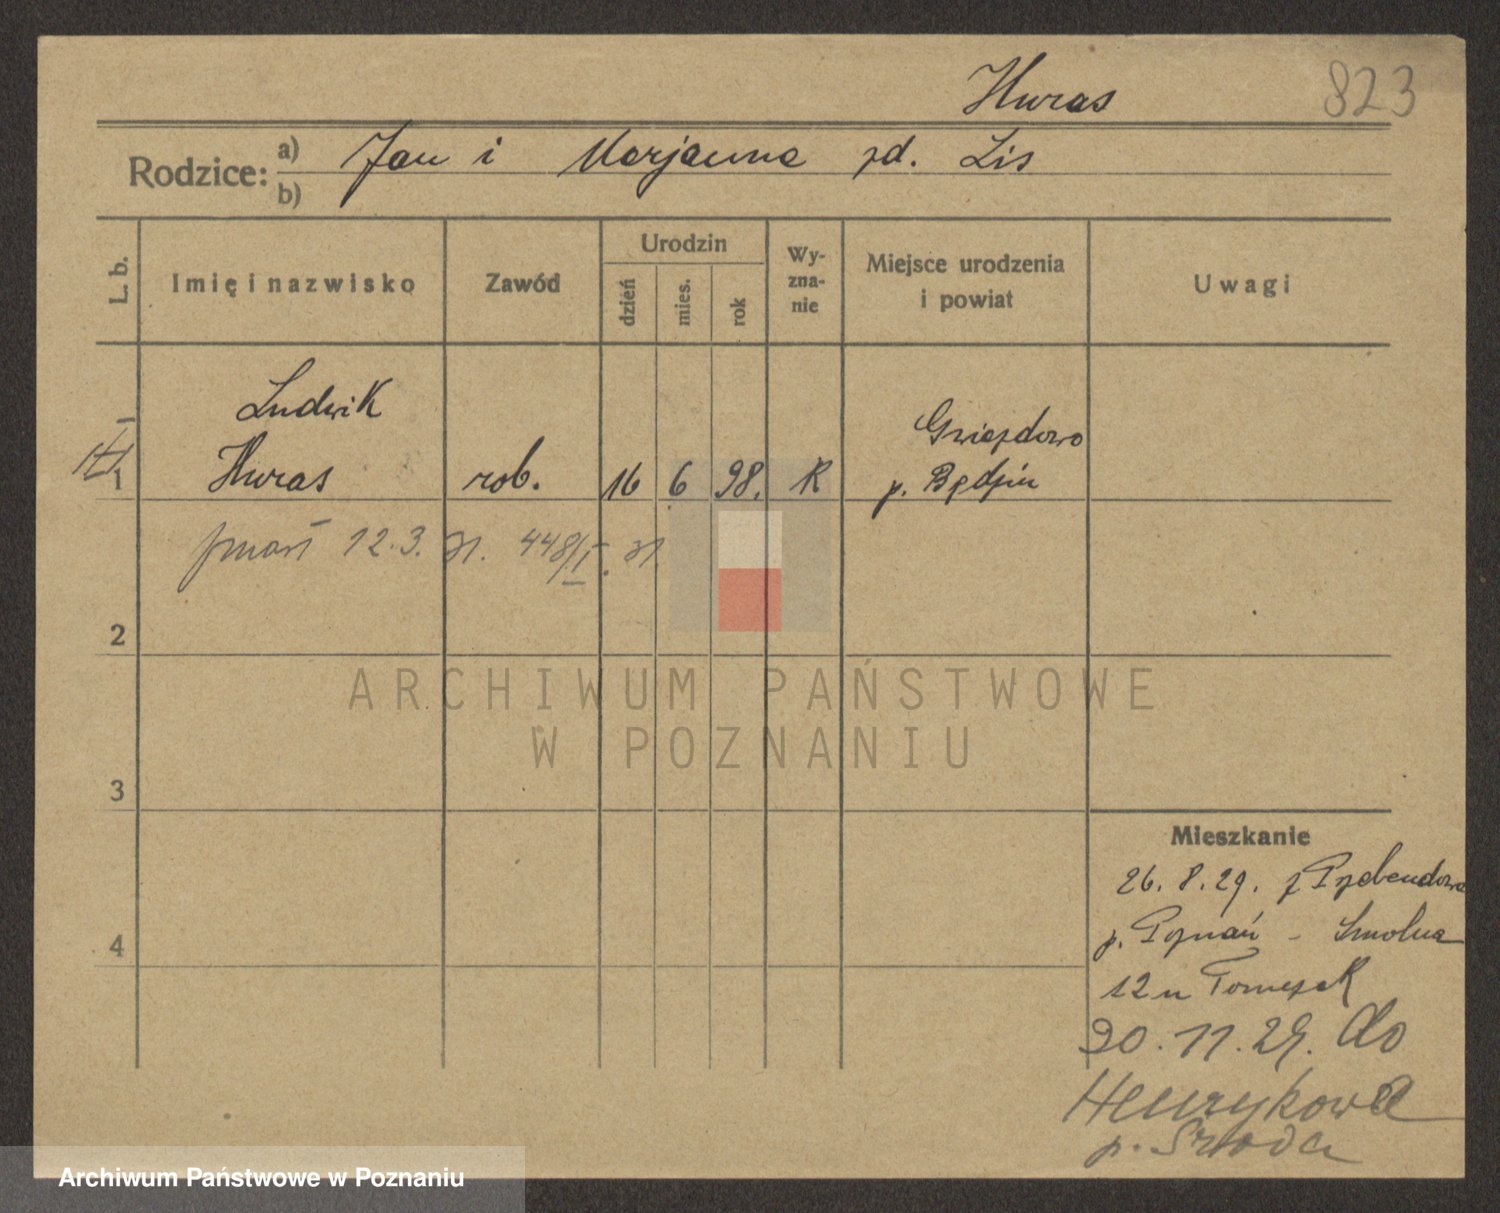 Huras 823
Rodzice: a) Jan i Marjanna zd. Lis
b)
L. b.
Imię i nazwisko
Zawód
Urodzin
dzień
mies.
rok
Wy-
zna-
nie
Miejsce urodzenia
i powiat
Uwagi
Ludwik
Huras
1
rob.
16
6
98.
K
Gniazdowo
p. Będzin
zmarł 12.3. 31. 448/II. 31.
2
3
4
Mieszkanie
26. 8. 29. z Przebendowa
p. Poznań - Smolna
12 u Tomczak
30. 11. 29. do
Henrykowa
p. Środa
ARCHIWUM PAŃSTWOWE
W POZNANIU
Archiwum Państwowe w Poznaniu